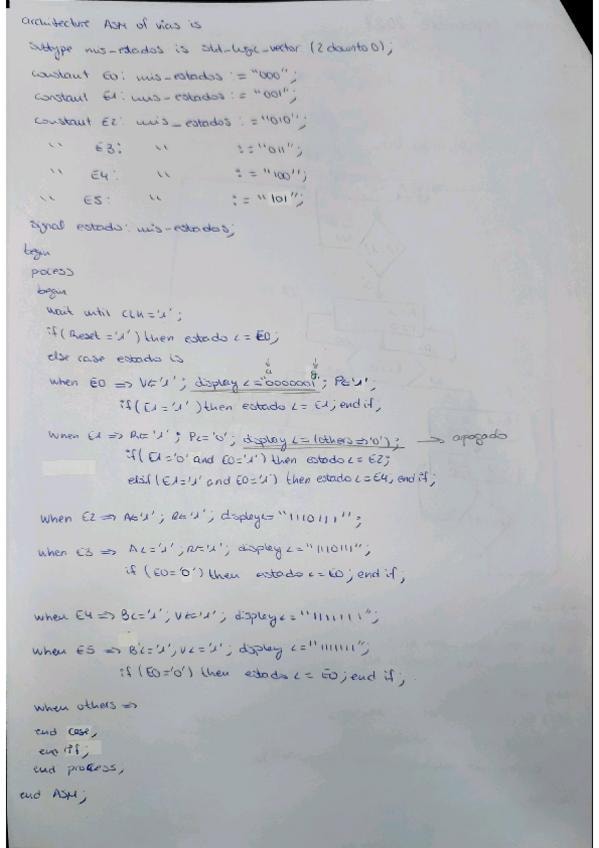 architecture ASM of vias is
subtype mis-estados is std-logic-vector (2 downto 0);
constant E0: mis-estados := "000";
constant E1: mis-estados := "001";
constant E2: mis_estados := "010";
" E3: " := "011";
" E4: " := "100";
" E5: " := "101";
signal estado: mis-estados;
begin
process
begin
wait until CLK='1';
if (Reset ='1') then estado <= E0;
else case estado is
a g
when E0 => V<='1'; display <="0000001"; P<='1';
if (E1 ='1') then estado <= E1; end if;
when E1 => R<='1'; P<='0'; display <= (others=>'0'); → apagado
if (E1='0' and E0='1') then estado <= E2;
elsif (E1='1' and E0='1') then estado <= E4, end if;
when E2 => A<='1'; R<='1'; display<= "1110111";
when E3 => A<='1'; R<='1'; display <= "1110111";
if (E0='0') then estado <= E0; end if;
when E4 => B<='1', V<='1'; display <= "1111111";
when E5 => B<='1', V<='1'; display <= "1111111";
if (E0='0') then estado <= E0; end if;
when others =>
end case,
end if;
end process,
end ASM;